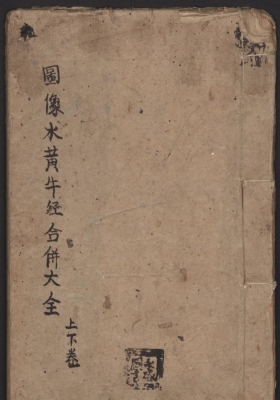 圖像水黄牛经合併大全
上下卷